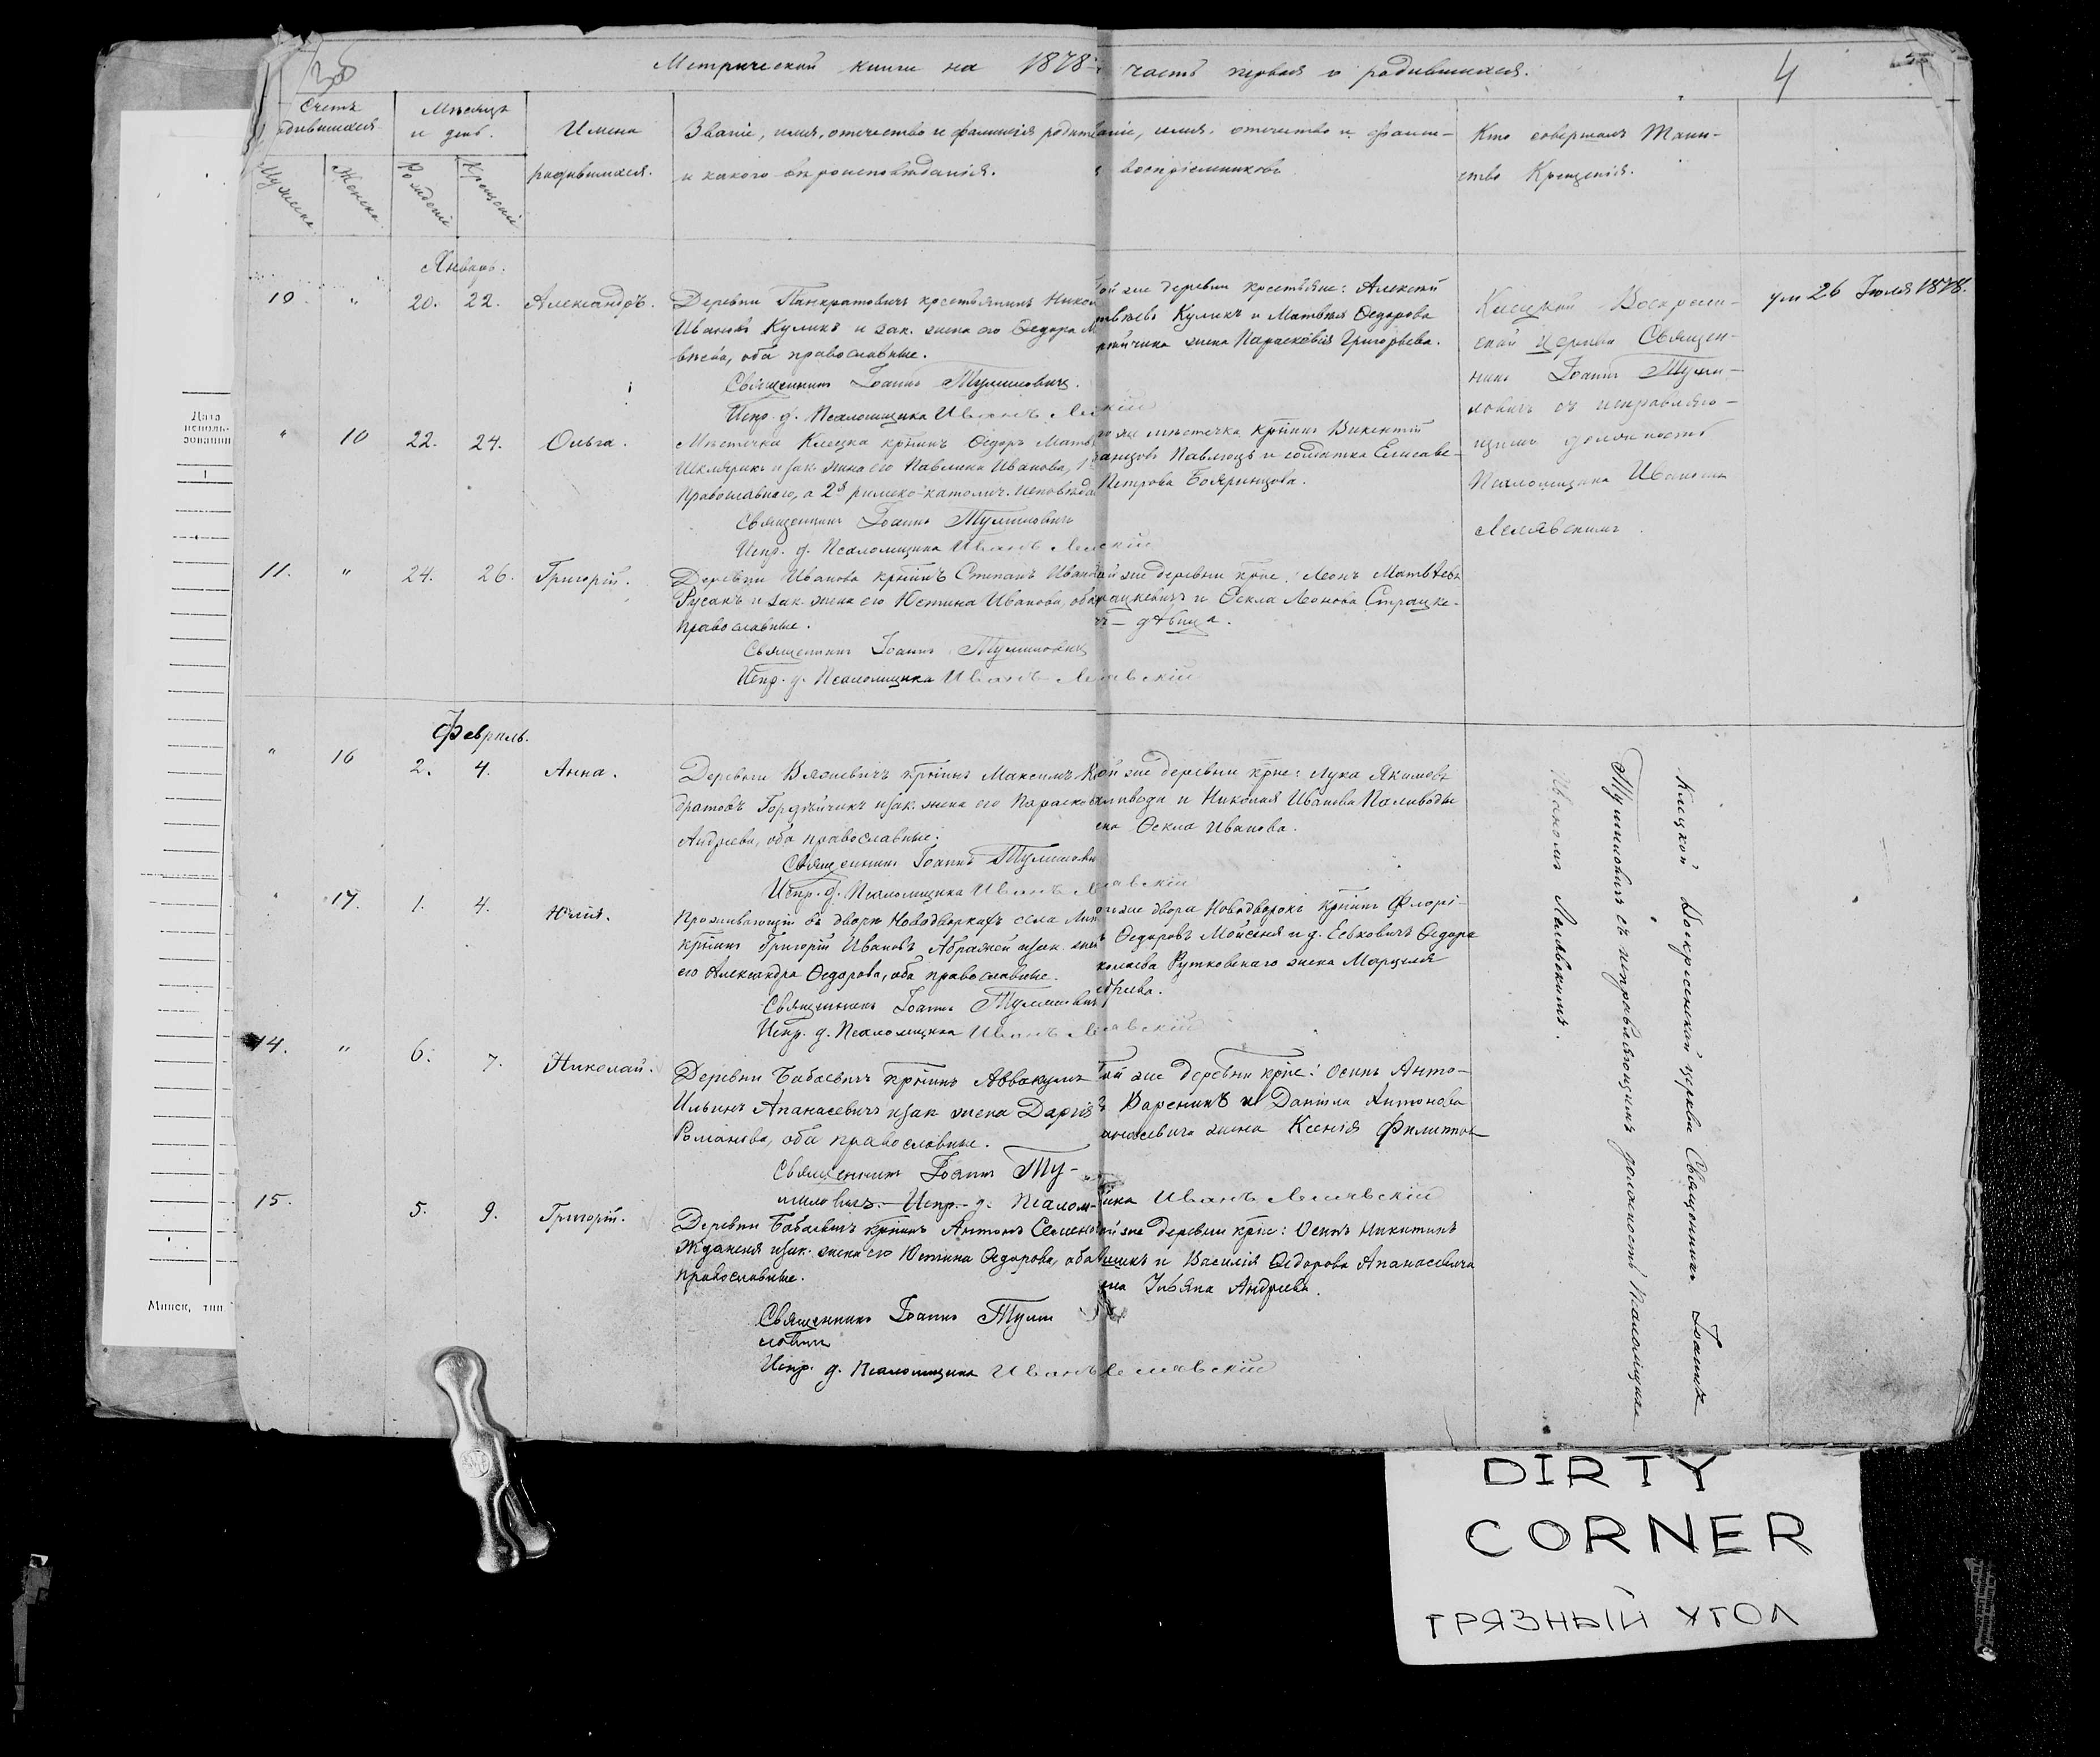 Метрической книги на 1878 часть первая о родившихся.
4
Счетъ
одившихся
Мужеска
Женска
Мѣсяцъ
и день.
Рожденіе
Крещеніе
Имена
родившихся.
Званіе, имя, отечество и фамилія родите
и какого вѣроисповѣданія.
аніе, имя, отечество и фами-
воспріемниковъ
Кто совершалъ Таин-
ство Крещенія.
Январь.
10 " 20. 22. Александръ.
Деревни Панкратовичъ крестьянинъ Никол
Ивановъ Куликъ и зак. жена его Ѳедора М
вѣева, оба православные.
Священникъ Іоаннъ Тумиловичъ.
Испр. д. Псаломщика Иванъ Ле
ой же деревни крестьяне: Алексей
твѣевъ Куликъ и Матвѣя Ѳедорова
жена Параскевія Григорьева.
Клецкой Воскресен-
ской церкви Священ-
никъ Іоаннъ Туми-
ловичъ съ исправляю-
щимъ должность
Псаломщика Иваномъ
Лелявскимъ.
ум 26 Іюля 1878.
" 10 22. 24. Ольга.
Мѣстечка Клецка крнинъ Ѳедоръ Матв
Шклярикъ и зак. жена его Павлина Иванова, 1
Православнаго, а 2я римско-католич. исповѣда
Священникъ Іоаннъ Тумиловичъ
Испр. д. Псаломщика Иванъ Лелявскій
го же мѣстечка крнинъ Викентій
Павлюць и солдатка Елисаве-
Петрова Бояринцова.
11. " 24. 26. Григорій.
Деревни Иванова крнинъ Степанъ Ивано
Русакъ и зак. жена его Юстина Иванова, оба
православные.
Священникъ Іоаннъ Тумиловичъ
Испр. д. Псаломщика Иванъ Лелявскій
ой же деревни крне: Леонъ Матвѣевъ
рацкевичъ и Ѳекла Леонова Страцке-
чъ — дѣвица.
Февраль.
" 16 2. 4. Анна.
Деревни Вязневичъ крнинъ Максимъ К
дратовъ Гордѣйчикъ и зак. жена его Парасков
Андреева, оба православные.
Священникъ Іоаннъ Тумилови
Испр. д. Псаломщика Иванъ Лелявскій
ой же деревни крне: Лука Якимовъ
аливода и Николая Иванова Паливоды
ена Ѳекла Иванова.
Клецкой Воскресенской церкви Священникъ Іоаннъ
Тумиловичъ съ исправляющимъ должность Псаломщика
Иваномъ Лелявскимъ.
" 17. 1. 4. Юлія.
Проживающій въ дворѣ Новодворкахъ села Лип
крнинъ Григорій Ивановъ Абражей и зак. жен
его Александра Ѳедорова, оба православные.
Священникъ Іоаннъ Тумиловичъ
Испр. д. Псаломщика Иванъ Лелявскій
ого же двора Новодворокъ крнинъ Флорі-
ъ Ѳедоровъ Мойсеня и д. Еськовичъ Ѳедора
колаева Рутковскаго жена Марцеля
14. " 6. 7. Николай.
Деревни Бабаевичъ крнинъ Аввакумъ
Ильинъ Апанасевичъ и зак жена Дарія
Романова, оба православные.
Священникъ Іоаннъ Ту-
миловичъ. — Испр. д. Псаломщика Иванъ Лелявскій
той же деревни крне: Осипъ Анто-
ъ Вареникъ и Даніила Антонова
анасевича жена Ксенія Филиппов
15. 5. 9. Григорій.
Деревни Бабаевичъ крнинъ Антонъ Семено
Жданеня и зак. жена его Юстина Ѳедорова, оба
православные.
Священникъ Іоаннъ Туми
ловичъ
Испр. д. Псаломщика Иванъ Лелявскій
ой же деревни крне: Осипъ Никитинъ
и Василія Ѳедорова Апанасевича
ена Ульяна Андреева.
Дата
использо-
зования
1
Минск, тип
DIRTY
CORNER
ГРЯЗНЫЙ УГОЛ